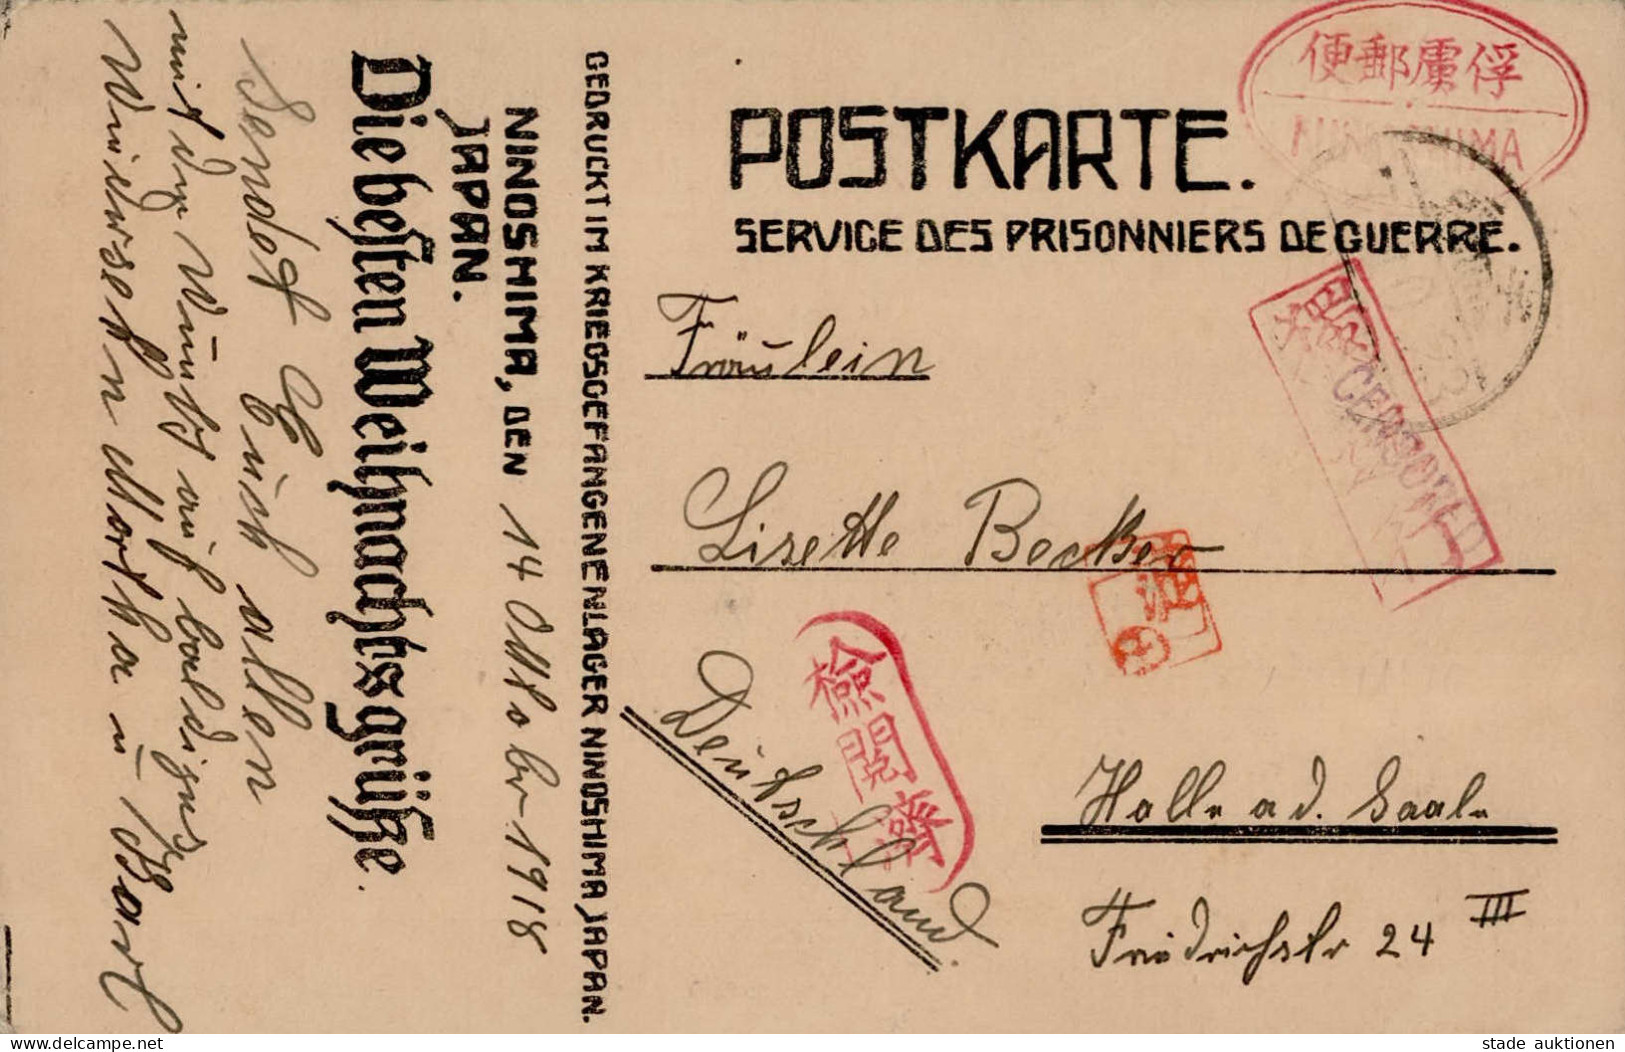 俘虜郵便
NINOSHIMA
POSTKARTE.
SERVICE DES PRISONNIERS DE GUERRE.
CENSORED
Fräulein
Lisette Becker
Deutschland.
検閲済
Halle a d. Saale
Friedrichstr 24 III
GEDRUCKT IM KRIEGSGEFANGENENLAGER NINOSHIMA, JAPAN.
NINOSHIMA, DEN 14 Oktober 1918
JAPAN.
Die besten Weihnachtsgrüße.
Sendet Euch allen
mit der Wunsch auf baldiges
Wiedersehn Martha u Carl
www.delcampe.net
stade auktionen